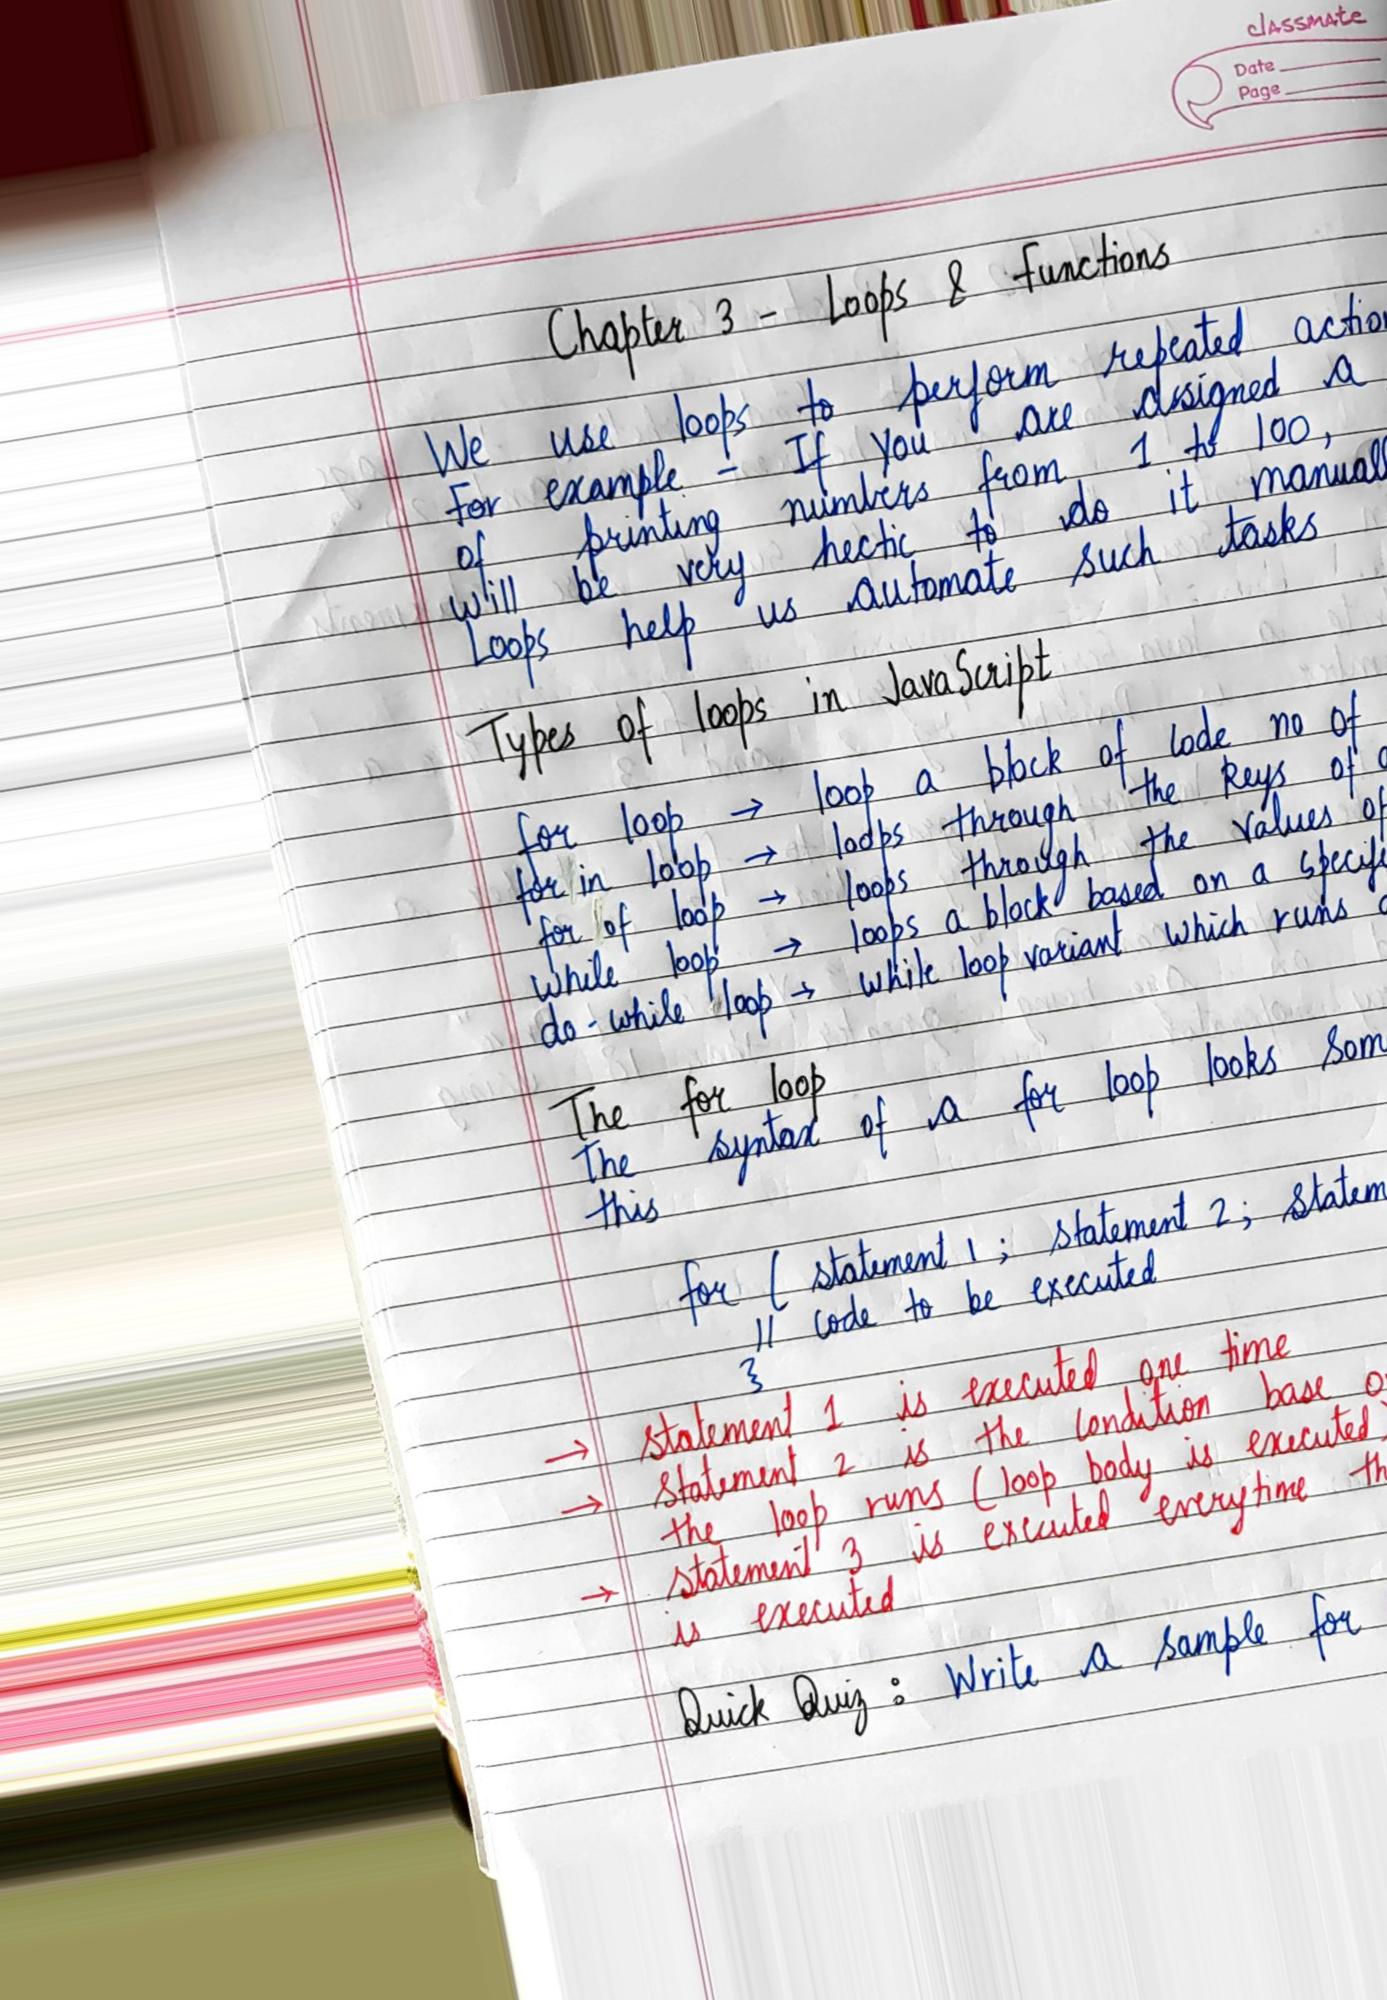 classmate
Date
Page
Chapter 3 - Loops & functions
We use loops to perform repeated action
For example - If you are assigned a
of printing numbers from 1 to 100,
will be very hectic to do it manuall
Loops help us automate such tasks
Types of loops in JavaScript
for loop → loop a block of code no of
for in loop → loops through the keys of
for of loop → loops through the values of
while loop → loops a block based on a specifi
do-while loop → while loop variant which runs
The for loop
The syntax of a for loop looks som
this
for ( statement 1 ; statement 2 ; statem
// code to be executed
}
→ statement 1 is executed one time
→ statement 2 is the condition base o
the loop runs (loop body is executed)
→ statement 3 is executed everytime th
is executed
Quick Quiz : Write a sample for